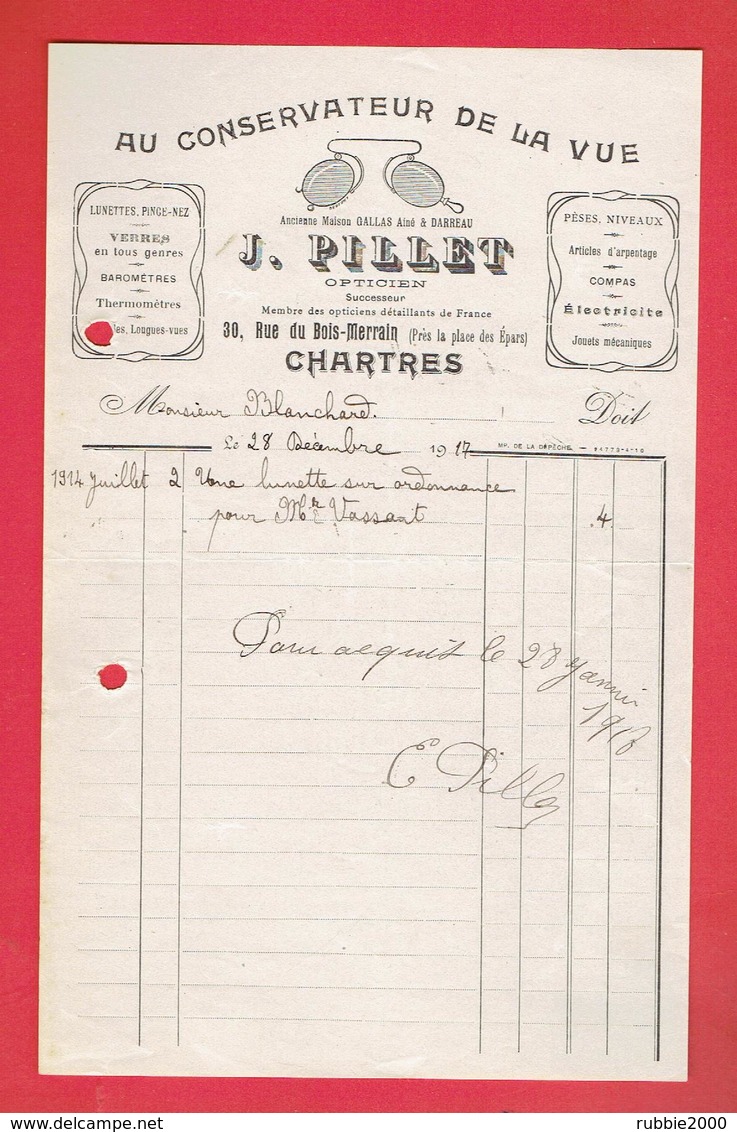 AU CONSERVATEUR DE LA VUE
Ancienne Maison GALLAS Aîné & DARREAU
J. PILLET
OPTICIEN
Successeur
Membre des opticiens détaillants de France
30, Rue du Bois-Merrain (Près la place des Épars)
CHARTRES
LUNETTES, PINCE-NEZ
VERRES
en tous genres
BAROMÈTRES
Thermomètres
les, Longues-vues
PÈSES, NIVEAUX
Articles d'arpentage
COMPAS
Électricité
Jouets mécaniques
Monsieur Blanchard. Doit
Le 28 Décembre 1917
IMP. DE LA DÉPÊCHE. — 14773-4-16
1914 Juillet 2 Une lunette sur ordonnance
pour Mr Vassant 4.
Pour acquit le 28 Janvier
1918
E Pillet
delcampe.net
rubbie2000